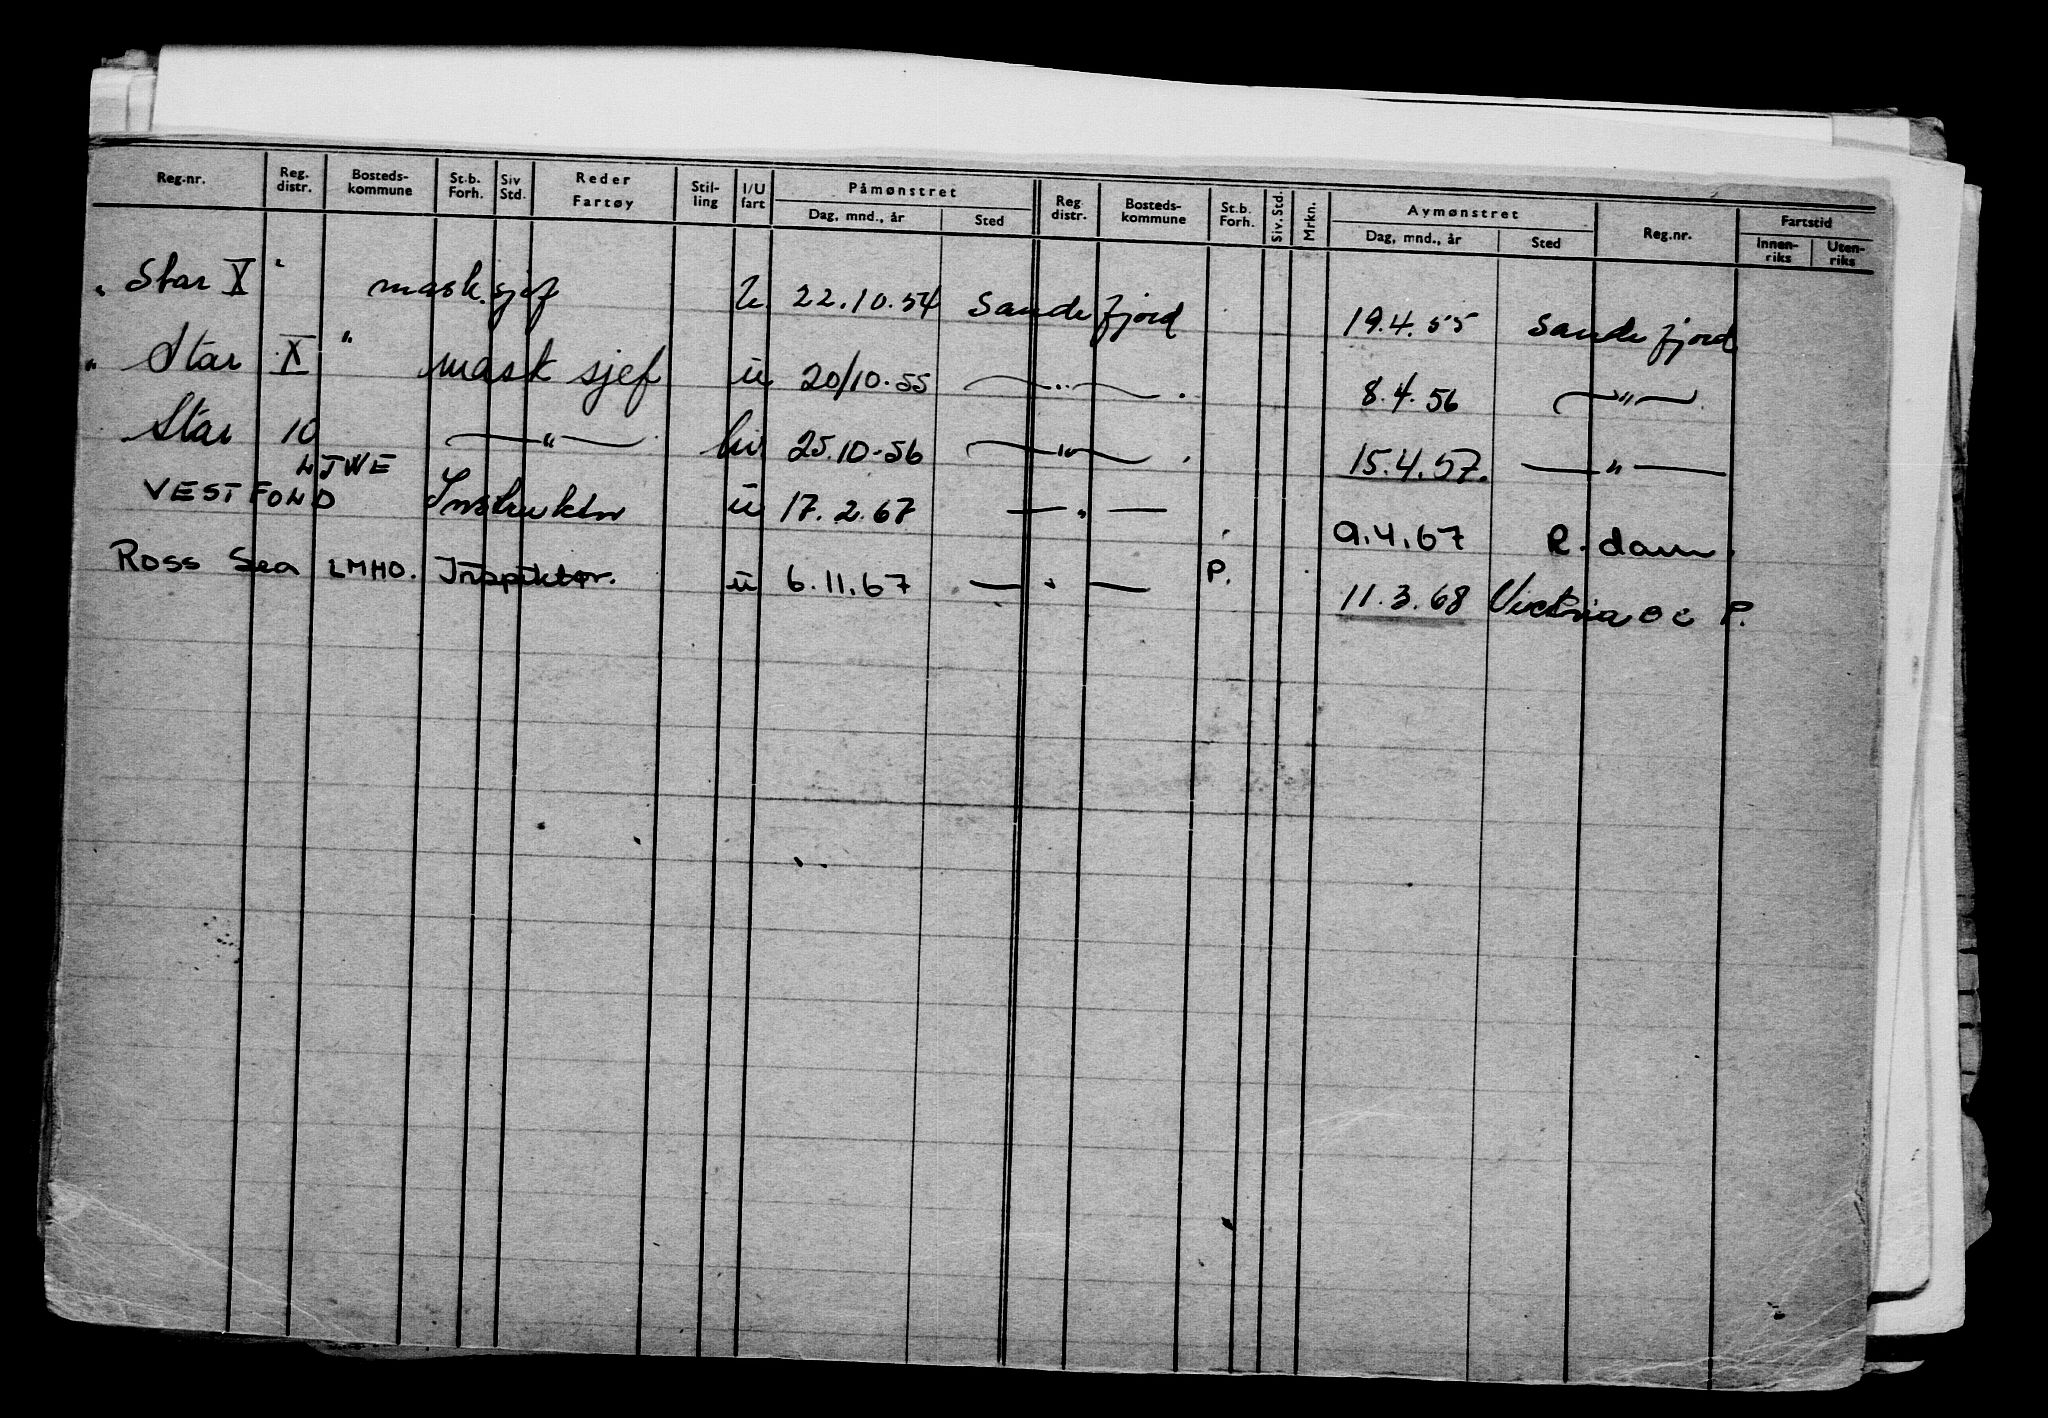 Reg.-nr. Reg. distr. Bosteds-kommune St.b. Forh. Siv Std. Reder Fartøy Stil-ling I/U fart Påmønstret Dag, mnd., år Sted Reg distr. Bosteds-kommune St.b. Forh. Siv. Std. Mrkn. Avmønstret Dag, mnd., år Sted Reg.nr. Fartstid Innen-riks Uten-riks
" Star X " mask.sjef 22.10.54 Sandefjord 19.4.55 Sandefjord
" Star X " mask sjef u 20/10.55 — " — . 8.4.56 — " —
Star 10 — " — hv. 25.10-56 — " — . 15.4.57. — " —
LJWE
VESTFOND Instruktør u 17.2.67 — " — 9.4.67 R.dam.
Ross Sea LMHO. Inspiktør. u 6.11.67 — " — P. 11.3.68 Victoria BC P.